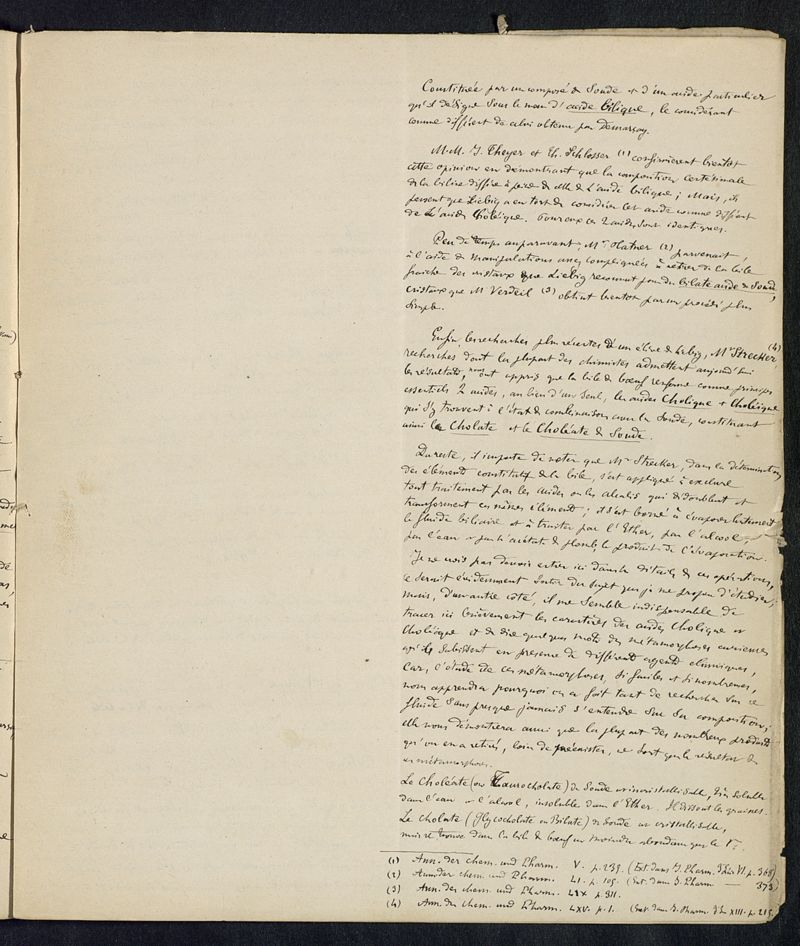 Constituée par un composé de Soude et d'un acide particulier
qu'il désigne sous le nom d'acide bilique, le considérant
comme différent de celui obtenu par Demarçay.
M.M. J. Theyer et Th. Schlosser (1) confirmèrent bientôt
cette opinion en démontrant que la composition centésimale
de la bile diffère à peine de celle de l'acide bilique; Mais, ils
pensent que Liebig a eu tort de considérer cet acide comme différent
de l'acide Choléique. Pour eux ces 2 acides sont identiques.
Peu de temps auparavant, Mr (2) parvenait,
à l'aide de manipulations assez compliquées à retirer de la bile
fraiche des cristaux que Liebig reconnut pour du bilate acide de Soude,
cristaux que M Verdeil (3) obtint bientôt par un procédé plus
simple.
Enfin, les recherches plus récentes d'un élève de Liebig, Mr Strecker, (4)
recherches dont la plupart des chimistes admettent aujourd'hui
les résultats, nous ont appris que la bile de bœuf renferme comme principes
essentiels 2 acides, au lieu d'un seul, les acides Cholique et Choléique
qui s'y trouvent à l'état de combinaison avec la Soude, constituant
ainsi le Cholate et le Choléate de Soude.
Du reste, il importe de noter que Mr Strecker, dans la détermination
des éléments constitutifs de la bile, s'est appliqué à exclure
tout traitement par les acides ou les alcalis qui dédoublent et
transforment ces mêmes éléments; il s'est borné à évaporer lentement
le fluide biliaire et à traiter par l'Ether, par l'alcool,
par l'eau et par l'acétate de plomb, le produit de l'évaporation.
Je ne crois pas devoir entrer ici dans les détails de ces opérations,
ce serait évidemment sortir du sujet que je me propose d'étudier;
mais, d'un autre côté, il me semble indispensable de
tracer ici brièvement les caractères des acides Cholique et
Choléique et de dire quelques mots des métamorphoses curieuses
qu'ils subissent en présence de différents agents chimiques,
Car, l'étude de ces métamorphoses, si faciles et si nombreuses,
nous apprendra pourquoi on a fait tant de recherches sur ce
fluide sans presque jamais s'entendre sur sa composition;
elle nous démontrera aussi que la plupart des nombreux produits
qu'on en a retirés, loin de préexister, ne sont que le résultat de
ces métamorphoses.
Le Choléate (ou Taurocholate) de Soude est incristallisable, très soluble
dans l'eau et l'alcool, insoluble dans l'Ether. Il dissout les graisses.
Le Cholate (Glycocholate ou Bilate) de Soude est cristallisable,
mais se trouve dans la bile de bœuf en moindre abondance que le 1er.
(1) Ann. der chem. und Pharm. V. p. 235. (Ext. dans J. Pharm. 3e Série VI p. 368)
(2) Ann. der chem. und Pharm. LI. p. 105. (Ext. dans J. Pharm — 373)
(3) Ann. der chem. und Pharm. LIX p. 311.
(4) Ann. der chem. und Pharm. LXV. p. 1. (Ext. dans J. Pharm. 3e S. XIII. p. 215.